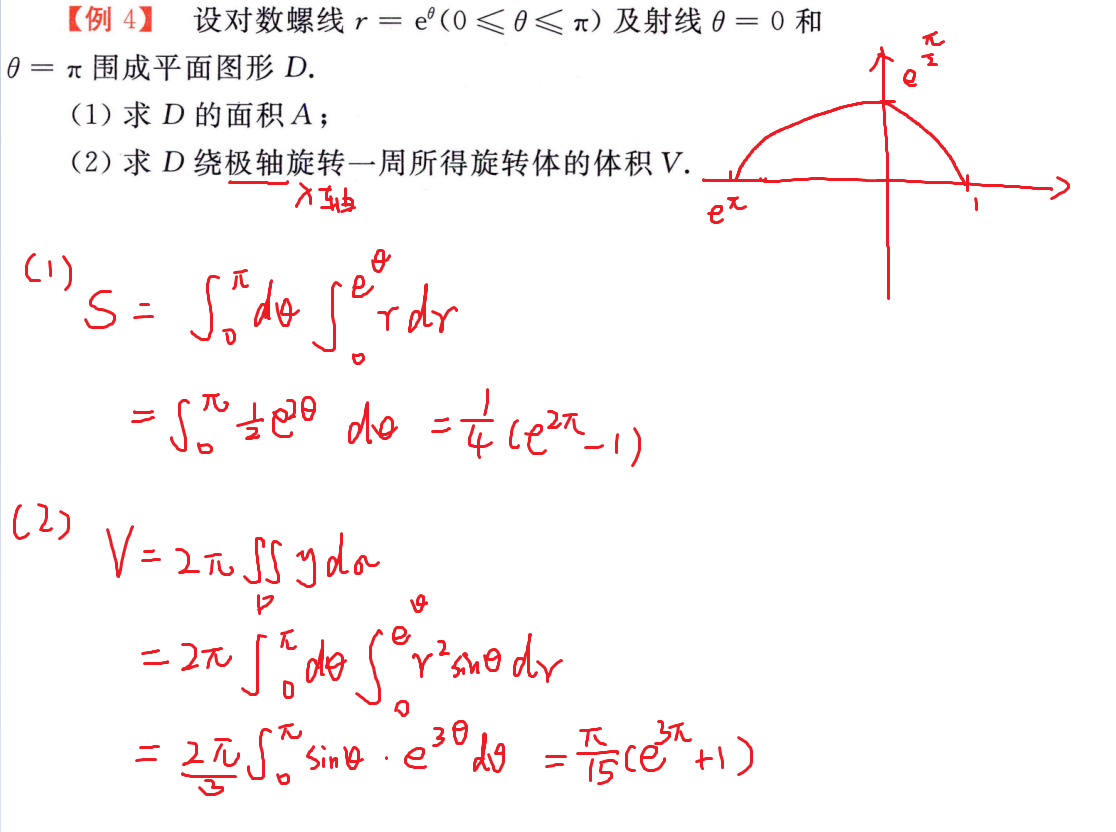 【例 4】 设对数螺线 r = e^θ(0 ⩽ θ ⩽ π) 及射线 θ = 0 和
θ = π 围成平面图形 D.
(1) 求 D 的面积 A；
(2) 求 D 绕极轴旋转一周所得旋转体的体积 V.
x轴
e^{π/2}
e^π
1
(1) S = ∫_0^π dθ ∫_0^{e^θ} r dr
= ∫_0^π 1/2 e^{2θ} dθ = 1/4 (e^{2π} - 1)
(2) V = 2π ∬_D y dσ
= 2π ∫_0^π dθ ∫_0^{e^θ} r² sinθ dr
= 2π/3 ∫_0^π sinθ · e^{3θ} dθ = π/15 (e^{3π} + 1)